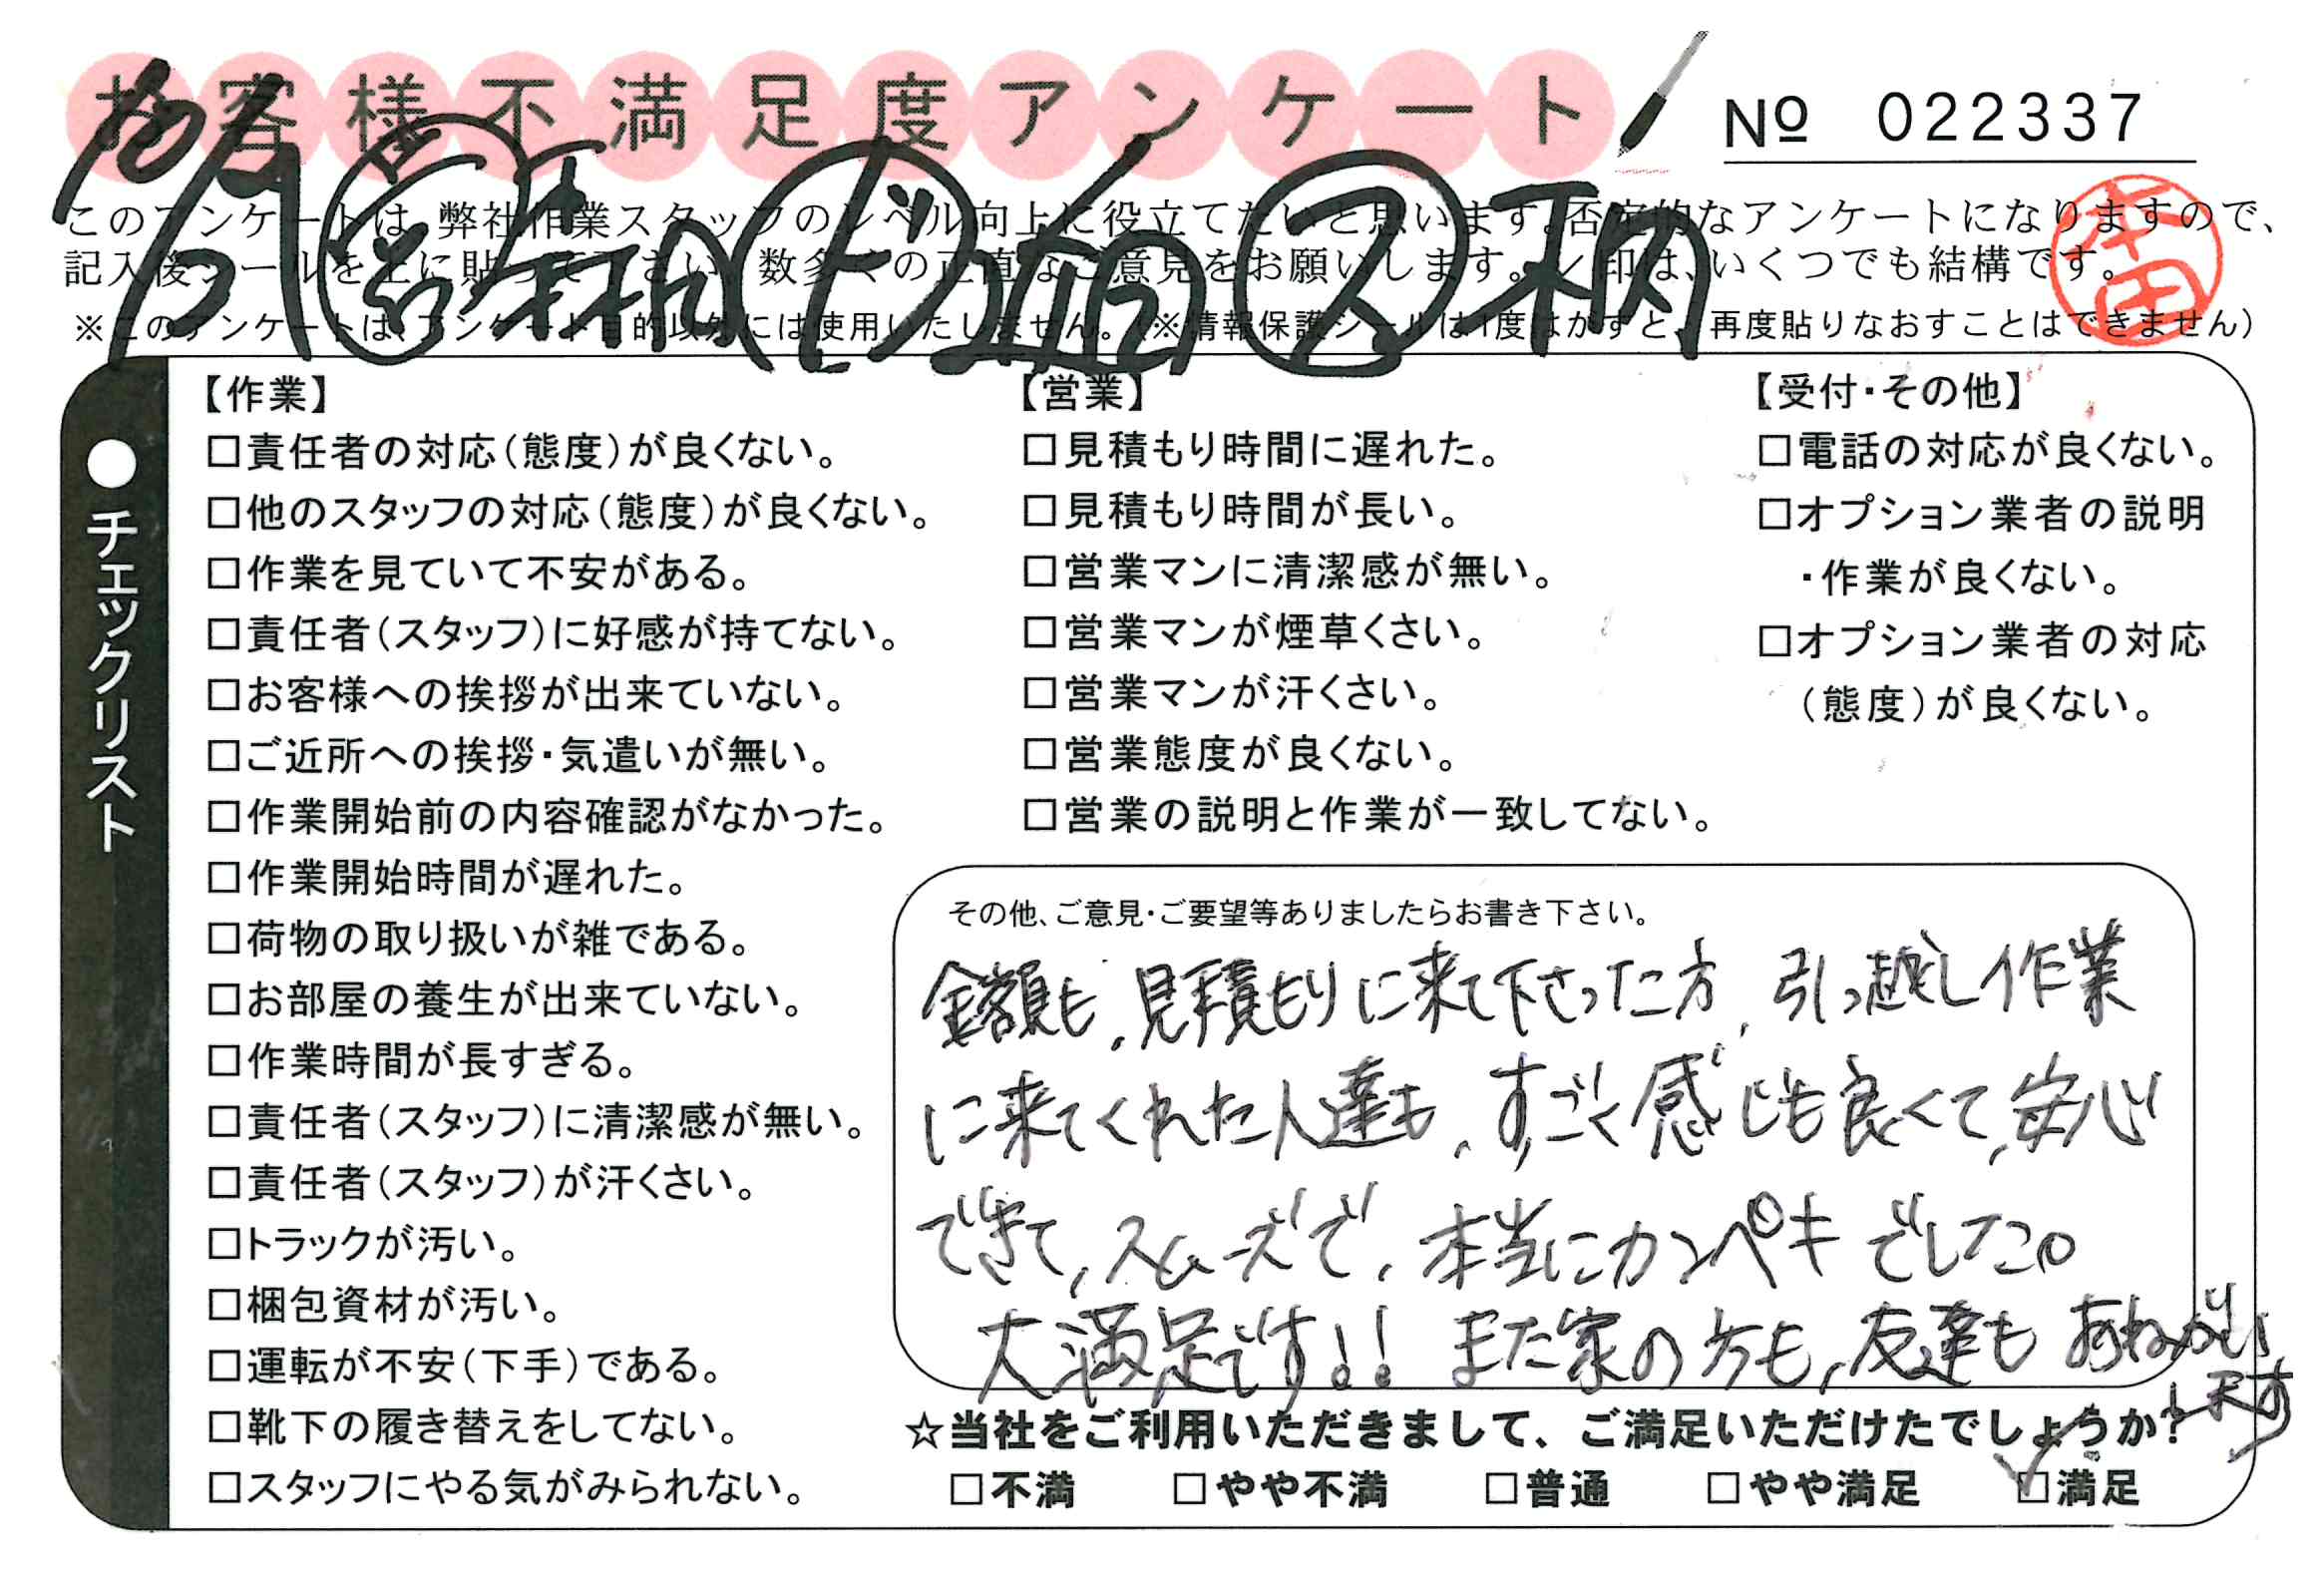 お客様不満足度アンケート
№ 022337
このアンケートは、弊社作業スタッフのレベル向上に役立てたいと思います。否定的なアンケートになりますので、
記入後シールを上に貼って下さい。数多くの正直なご意見をお願いします。✓印は、いくつでも結構です。
※このアンケートは、アンケート目的以外には使用いたしません。（※情報保護シールは1度はがすと、再度貼りなおすことはできません）
本田
●チェックリスト
【作業】
□責任者の対応（態度）が良くない。
□他のスタッフの対応（態度）が良くない。
□作業を見ていて不安がある。
□責任者（スタッフ）に好感が持てない。
□お客様への挨拶が出来ていない。
□ご近所への挨拶・気遣いが無い。
□作業開始前の内容確認がなかった。
□作業開始時間が遅れた。
□荷物の取り扱いが雑である。
□お部屋の養生が出来ていない。
□作業時間が長すぎる。
□責任者（スタッフ）に清潔感が無い。
□責任者（スタッフ）が汗くさい。
□トラックが汚い。
□梱包資材が汚い。
□運転が不安（下手）である。
□靴下の履き替えをしてない。
□スタッフにやる気がみられない。
【営業】
□見積もり時間に遅れた。
□見積もり時間が長い。
□営業マンに清潔感が無い。
□営業マンが煙草くさい。
□営業マンが汗くさい。
□営業態度が良くない。
□営業の説明と作業が一致してない。
【受付・その他】
□電話の対応が良くない。
□オプション業者の説明
・作業が良くない。
□オプション業者の対応
（態度）が良くない。
その他、ご意見・ご要望等ありましたらお書き下さい。
金額も、見積もりに来て下さった方、引っ越し作業
に来てくれた人達も、すごく感じも良くて、安心
できて、スムーズで、本当にカンペキでした。
大満足です!! また家の方も、友達もおねがい
します
☆当社をご利用いただきまして、ご満足いただけたでしょうか?
□不満 □やや不満 □普通 □やや満足 ☑満足